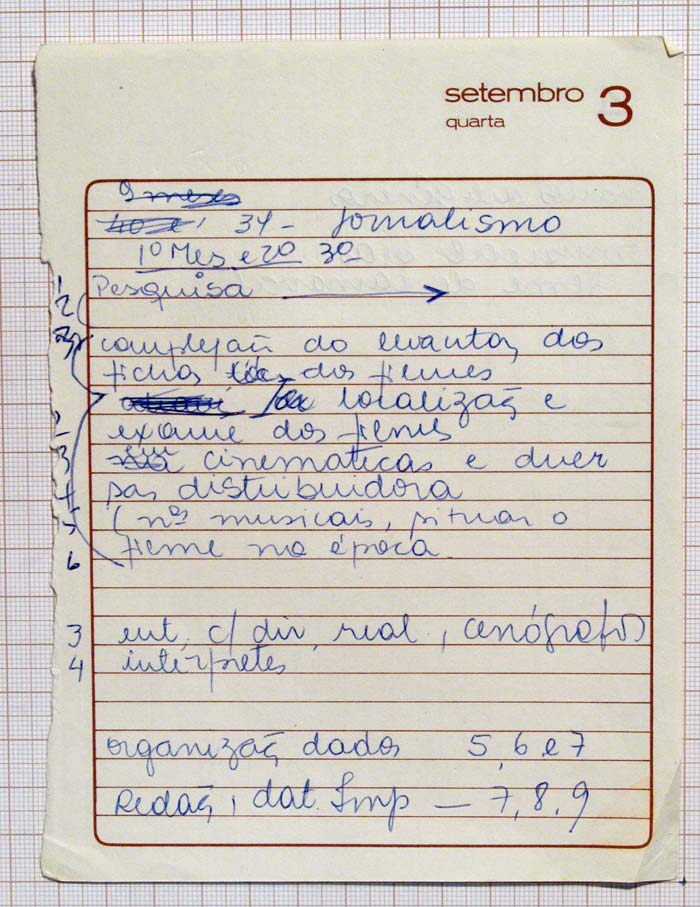 setembro 3
quarta
9 meses
34 - Jornalismo
1º Mes e 2º 3º
1 Pesquisa
2
compleção do levantaç dos
fichas dos filmes
localizaçã e
2 exame dos filmes
3 cinematicas e diver
4 sas distribuidora
5 (nºs musicais, situar o
6 filme na época.
3 ent. c/ dir, real, cenógrafos
4 intérpretes
organizaçã dados 5, 6 e 7
Redaçã, dat. Imp — 7, 8, 9